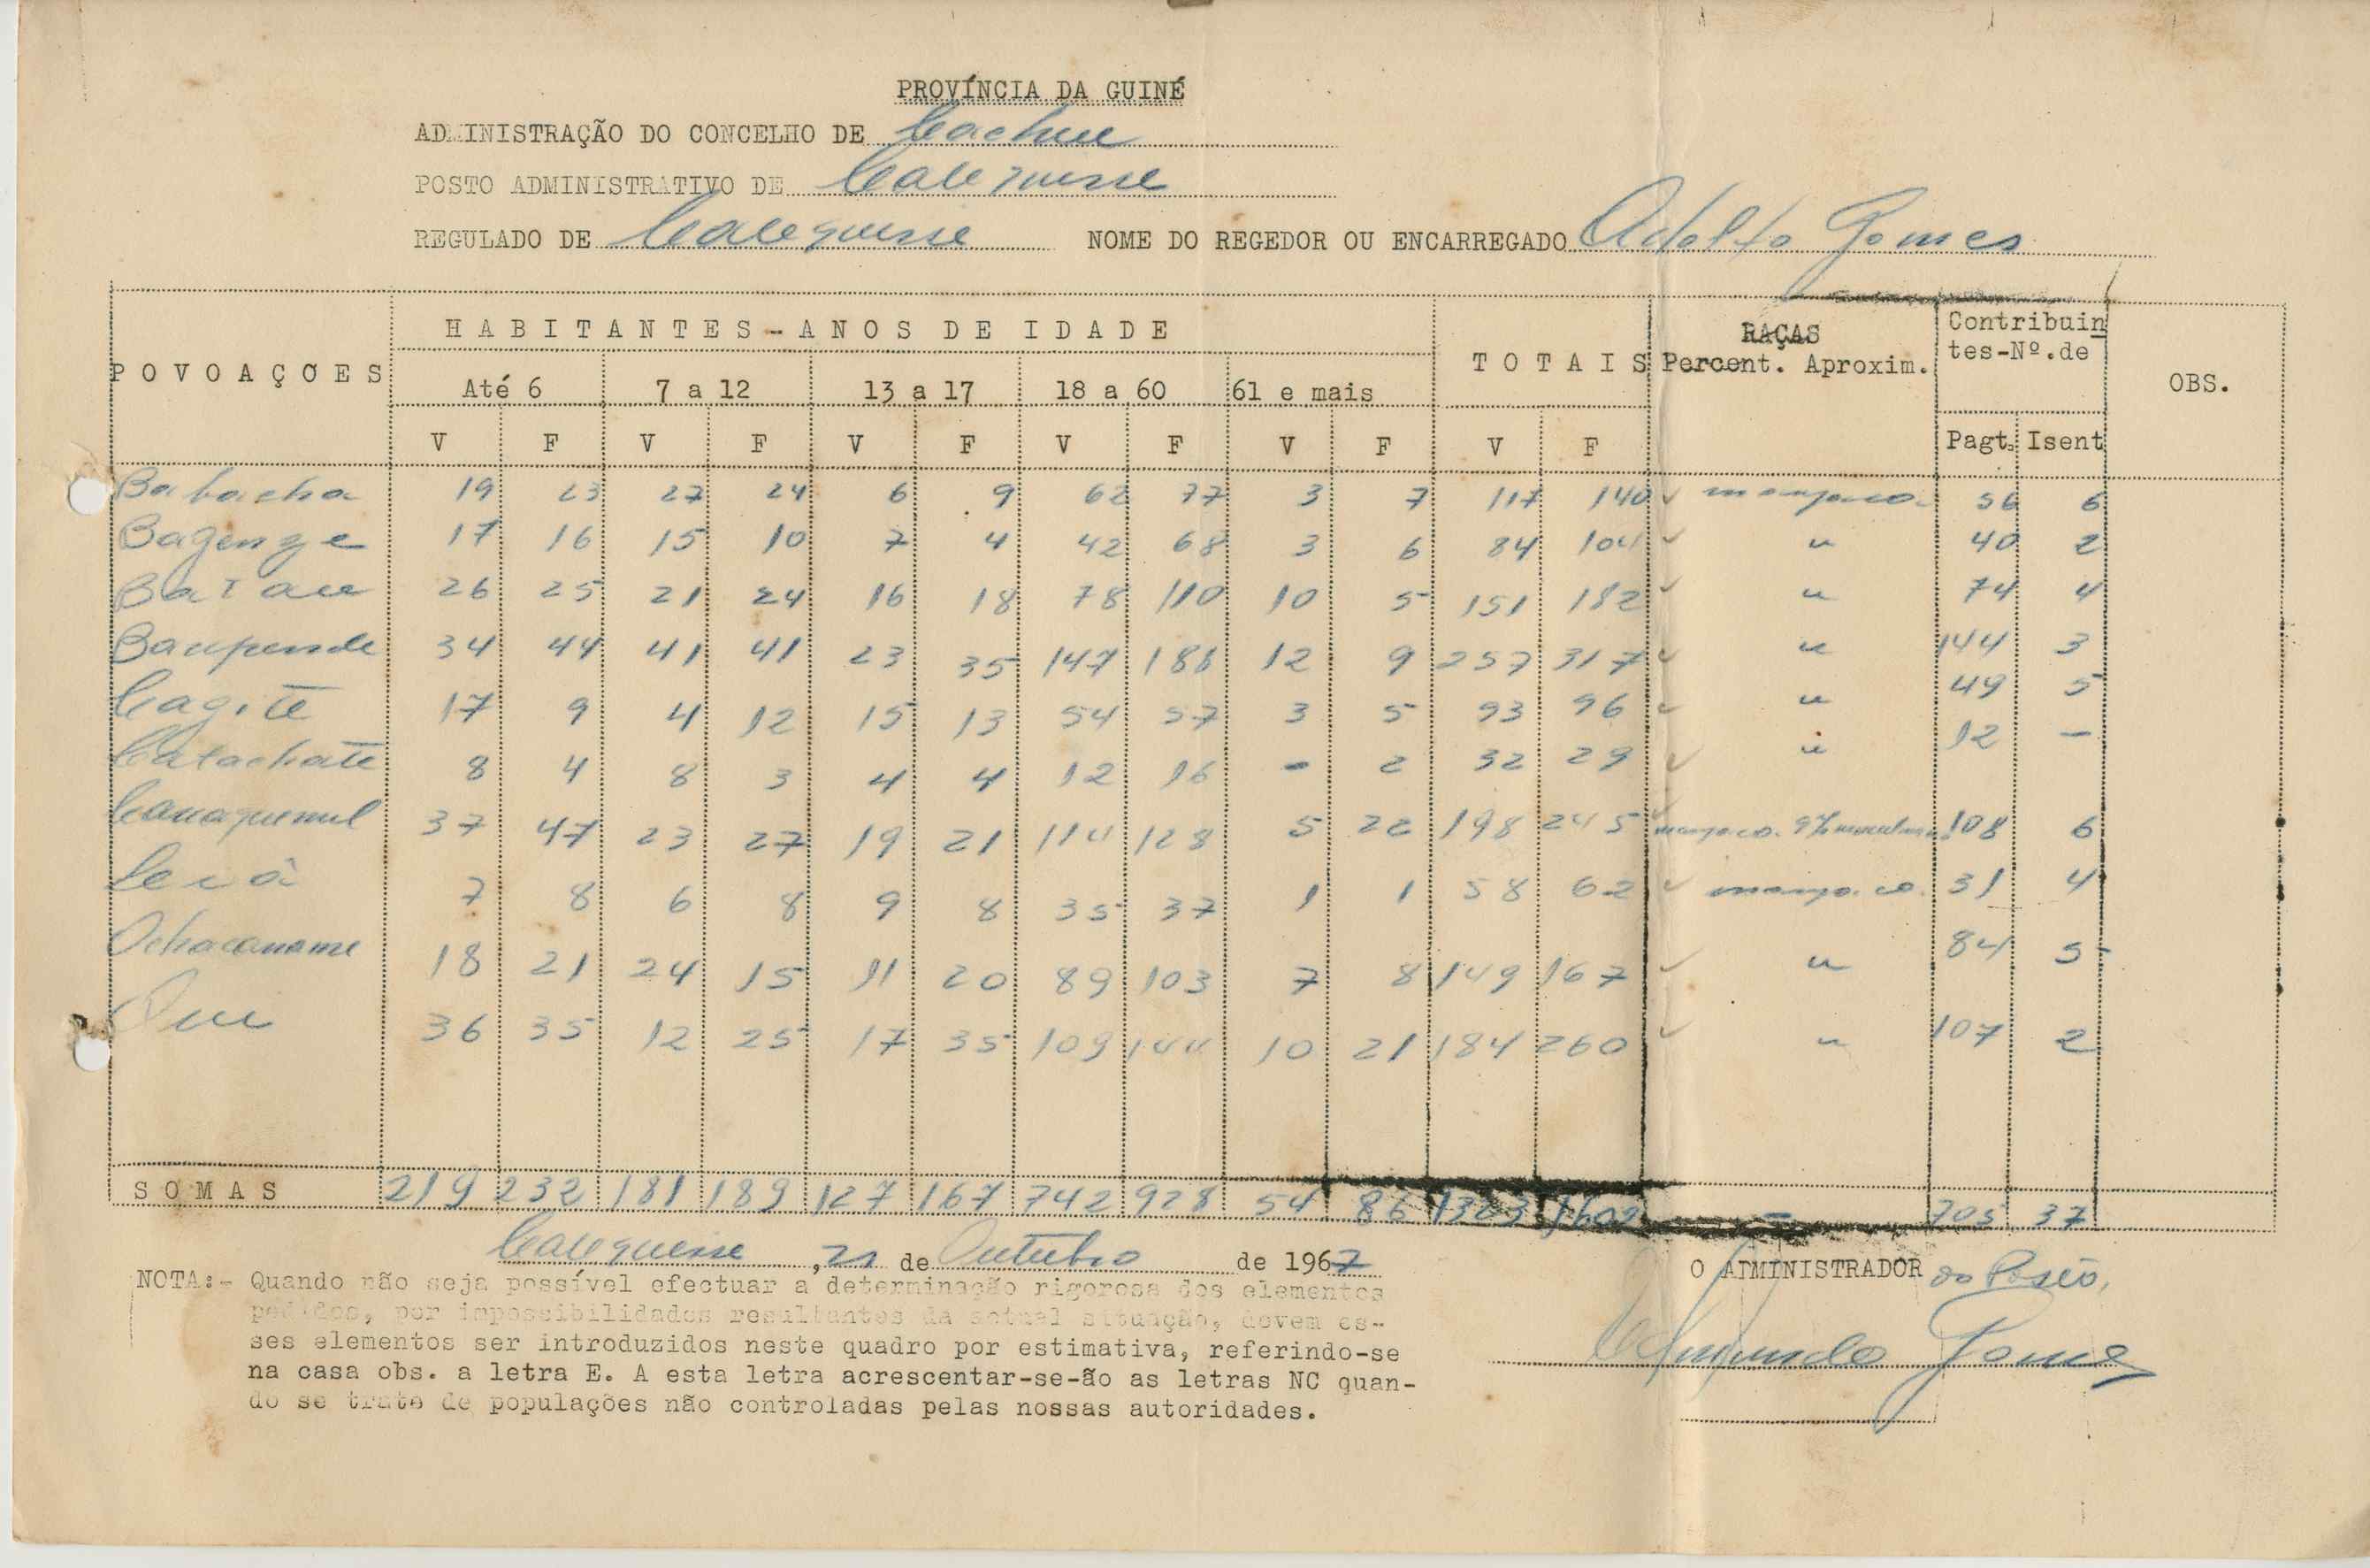 PROVÍNCIA DA GUINÉ
ADMINISTRAÇÃO DO CONCELHO DE Cacheu
POSTO ADMINISTRATIVO DE Calequisse
REGULADO DE Calequisse NOME DO REGEDOR OU ENCARREGADO Adolfo Gomes
POVOAÇÕES HABITANTES-ANOS DE IDADE TOTAIS RAÇAS Percent. Aproxim. Contribuin tes-Nº.de OBS.
Até 6 7 a 12 13 a 17 18 a 60 61 e mais
V F V F V F V F V F V F Pagt. Isent
Babacha 19 23 27 24 6 9 62 77 3 7 117 140 manjaco 56 6
Bagenze 17 16 15 10 7 4 42 68 3 6 84 104 " 40 2
26 25 21 24 16 18 78 110 10 5 151 182 " 74 4
34 44 41 41 23 35 147 188 12 9 257 317 " 144 3
Cagite 17 9 4 12 15 13 54 57 3 5 93 96 " 49 5
Catachate 8 4 8 3 4 4 12 16 - 2 32 29 " 12 -
37 47 23 27 19 21 114 128 5 22 198 245 manjaco. 108 6
7 8 6 8 9 8 35 37 1 1 58 62 manjaco. 31 4
Ochacaname 18 21 24 15 11 20 89 103 7 8 149 167 " 84 5
36 35 12 25 17 35 109 144 10 21 184 260 " 107 2
SOMAS 219 232 181 189 127 167 742 928 54 86 1323 1602 - 705 37
Calequisse, 21 de Outubro de 1967
NOTA:- Quando não seja possível efectuar a determinação rigorosa dos elementos
pedidos, por impossibilidades resultantes da actual situação, devem es-
ses elementos ser introduzidos neste quadro por estimativa, referindo-se
na casa obs. a letra E. A esta letra acrescentar-se-ão as letras NC quan-
do se trate de populações não controladas pelas nossas autoridades.
O ADMINISTRADOR do Posto,